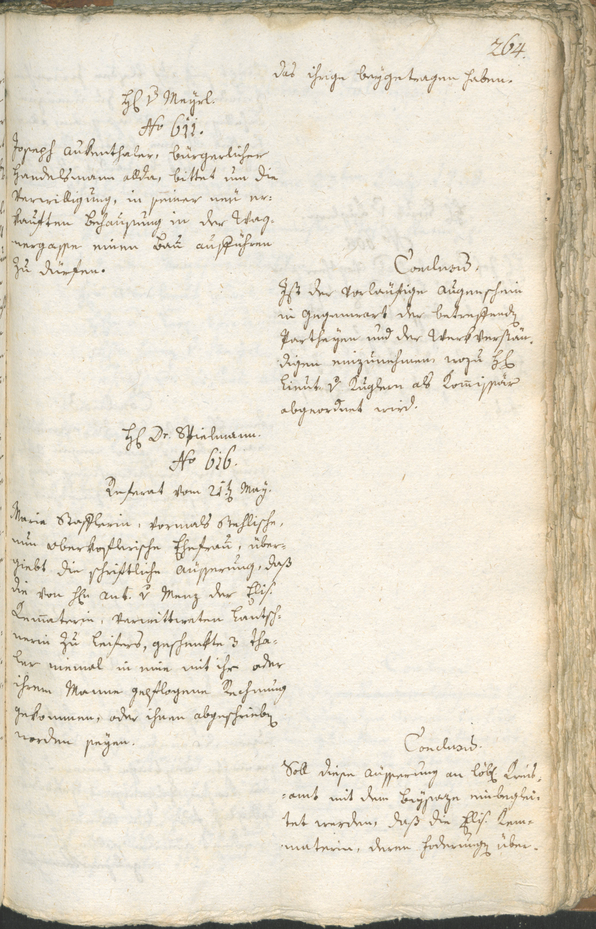 264.
das ihrige beygetragen haben.
H. v. Mayrl.
No 611.
Joseph Aukenthaler, bürgerlicher
Handelsmann allda, bittet um die
Verwilligung, in seiner neü er-
kauften Behausung in der Wag-
nergasse einen Bau ausführen
zu dürfen.
Conclusum.
Ist der vorläufige Augenschein
in Gegenwart der betreffenden
Partheyen und der Werkverstän-
digen einzunehmen, wozu H.
Lieut. v. Kuglern als Kommissär
abgeordnet wird.
H. Dr. Spielmann.
No 616.
Referat vom 21ten May.
Maria Stafflerin, vormals Stahlische,
nun Oberkoflerische Ehefrau, über-
giebt die schriftliche Äusserung, daß
die von Hn Ant. v. Menz der Elis.
Kematerin, verwittweten Lantsch-
nerin zu Leifers, geschenkte 3 Tha-
ler niemal in eine mit ihr oder
ihrem Manne gepflogene Rechnung
gekommen, oder ihnen abgeschrieben
worden seyen.
Conclusum.
Soll diese Äusserung an löbl. Kreis-
amt mit dem Beysatze einbeglei-
tet werden, daß die Elis. Kem-
materin, deren Foderung über-